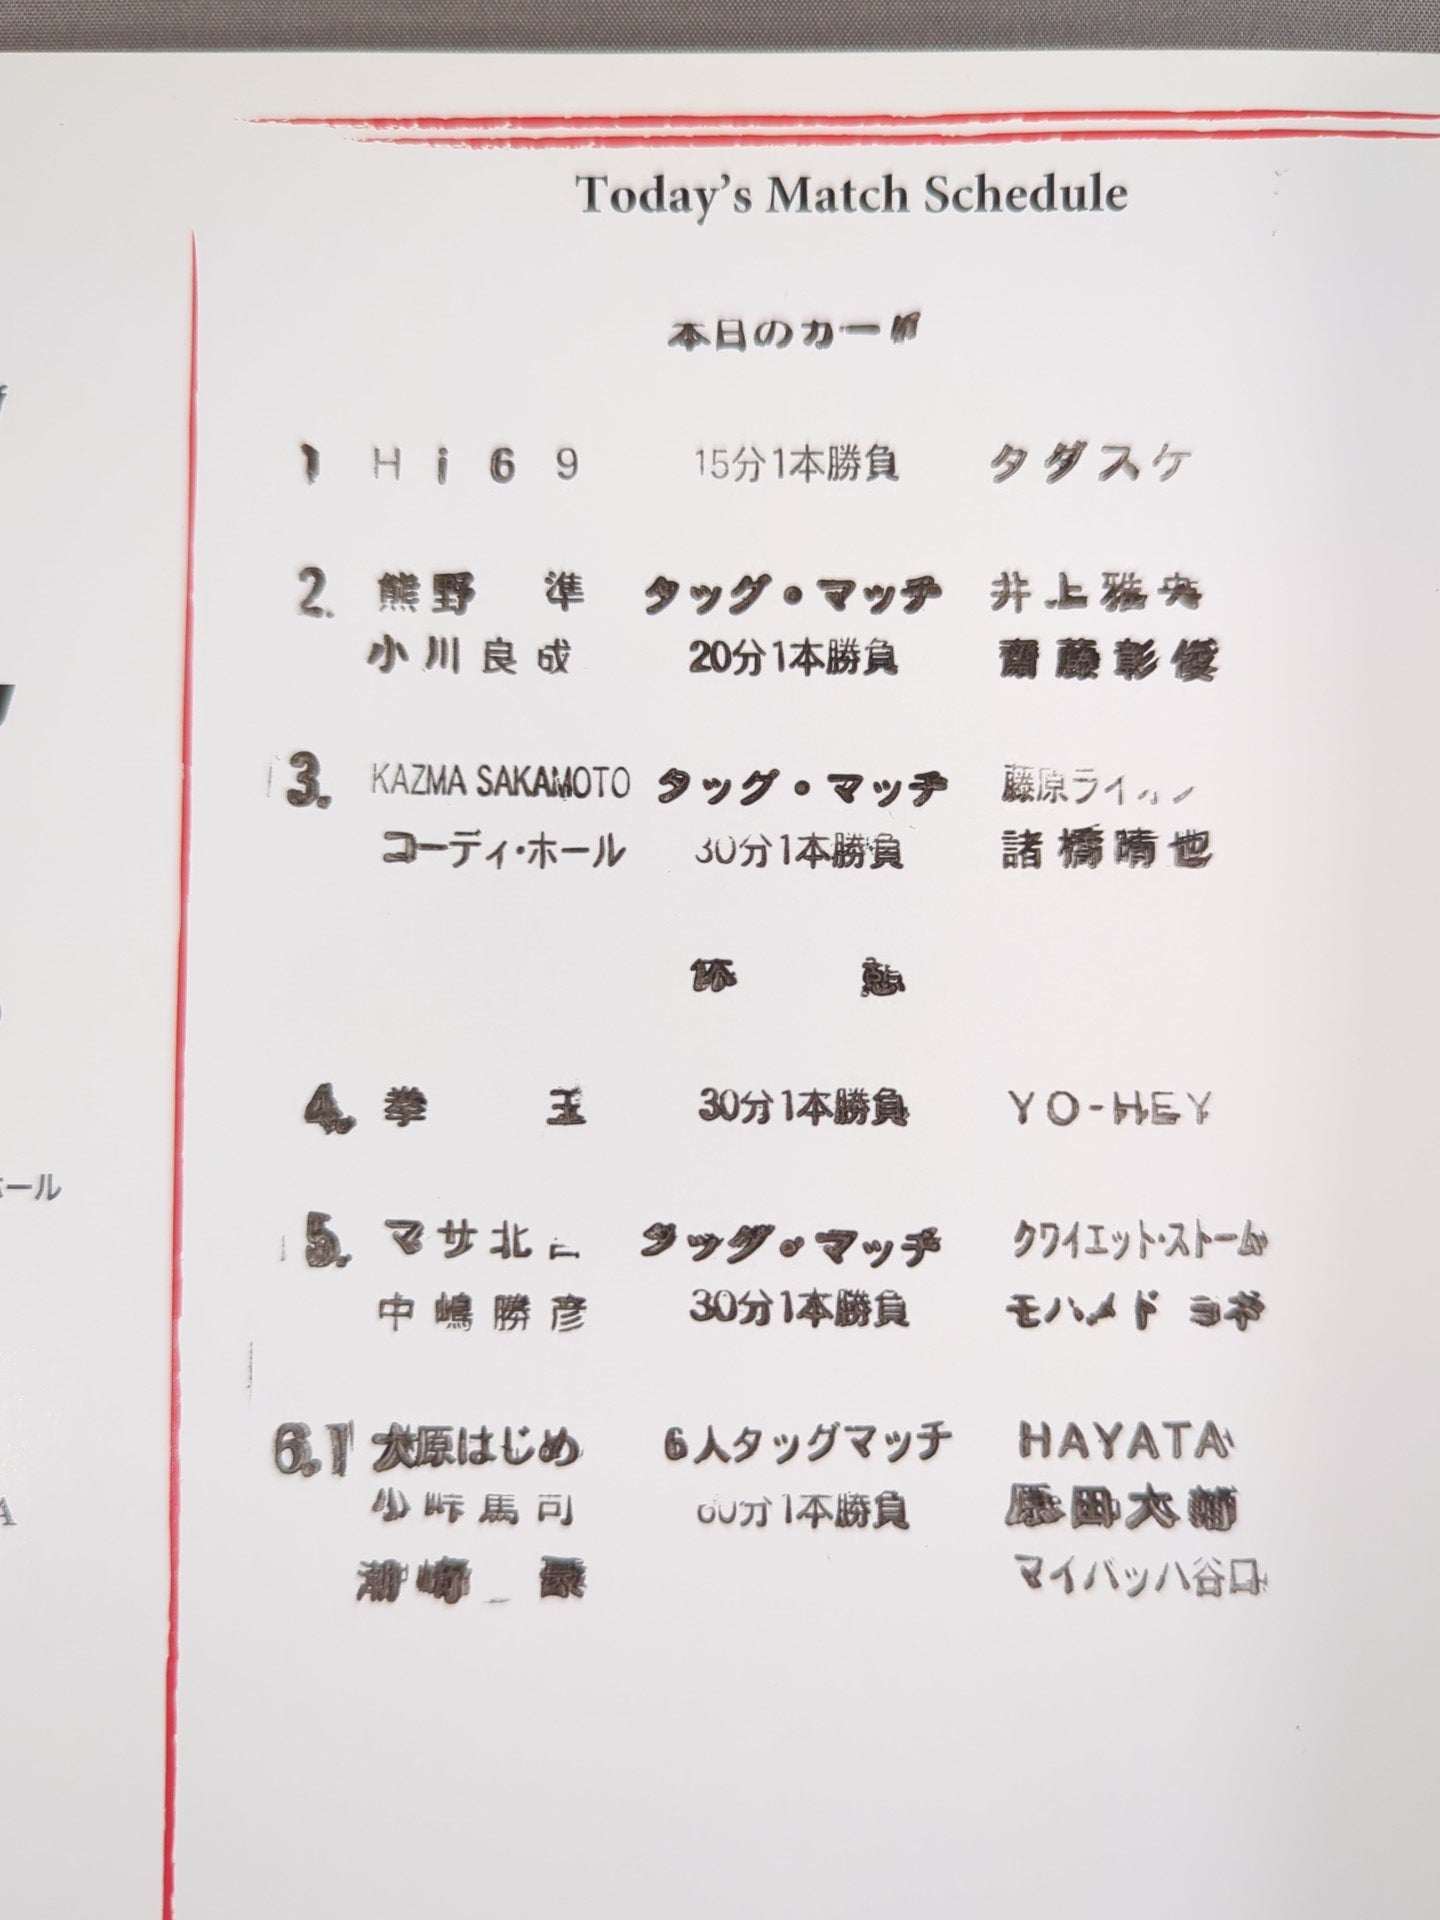 Today's Match Schedule
本日のカード
1 Hi69 15分1本勝負 タダスケ
2. 熊野 準 タッグ・マッチ 井上雅央
小川良成 20分1本勝負 齋藤彰俊
3. KAZMA SAKAMOTO タッグ・マッチ 藤原ライオン
コーディ・ホール 30分1本勝負 諸橋晴也
休 憩
4. 拳 王 30分1本勝負 YO-HEY
5. マサ北宮 タッグ・マッチ クワイエット・ストーム
中嶋勝彦 30分1本勝負 モハメド ヨネ
6. 大原はじめ 6人タッグマッチ HAYATA
小峠篤司 60分1本勝負 原田大輔
潮崎 豪 マイバッハ谷口
ール